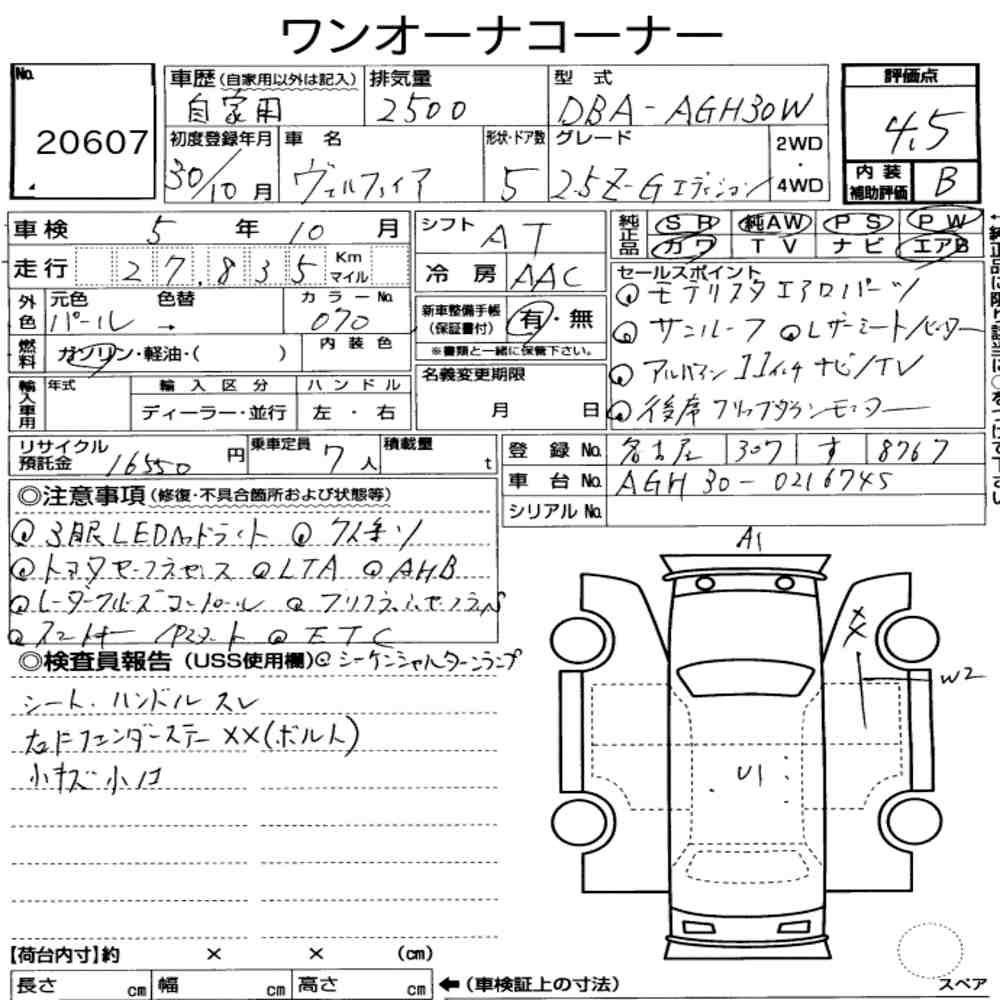 ワンオーナコーナー
No.
20607
車歴(自家用以外は記入)
自家用
排気量
2500
型式
DBA-AGH30W
評価点
4.5
初度登録年月
30/10月
車名
ヴェルファイア
形状・ドア数
5
グレード
2.5Z-Gエディション
2WD
・
4WD
内装
補助評価
B
車検 5年10月
走行 27,835 Km マイル
外色
元色 色替
パール →
カラーNo.
070
燃料
ガソリン・軽油・( )
内装色
輸入車用
年式
輸入区分
ハンドル
ディーラー・並行
左・右
シフト AT
冷房 AAC
新車整備手帳
(保証書付)
有・無
※書類と一緒に保管下さい。
名義変更期限
月 日
純正品
SR 純AW PS PW
カワ TV ナビ エアB
セールスポイント
◎モデリスタエアロパーツ
◎サンルーフ ◎レザーシート/ヒーター
◎アルパイン11インチナビ/TV
◎後席フリップダウンモニター
リサイクル
預託金 16550円
乗車定員 7人
積載量 t
登録No. 名古屋 307 す 8767
車台No. AGH30-0216745
シリアルNo.
◎注意事項(修復・不具合箇所および状態等)
◎3眼LEDヘッドライト ◎ワイパーソ
◎トヨタセーフティセンス ◎LTA ◎AHB
◎レーダークルーズコントロール ◎プリクラッシュセーフティS
◎スマートキー/Pスタート ◎ETC
◎検査員報告(USS使用欄)◎シーケンシャルターンランプ
シート、ハンドルスレ
右ドフェンダーステー××(ボルト)
小キズ小凹
A1
××
W2
U1
【荷台内寸】約 × × (cm)
長さ cm 幅 cm 高さ cm
←(車検証上の寸法)
スペア